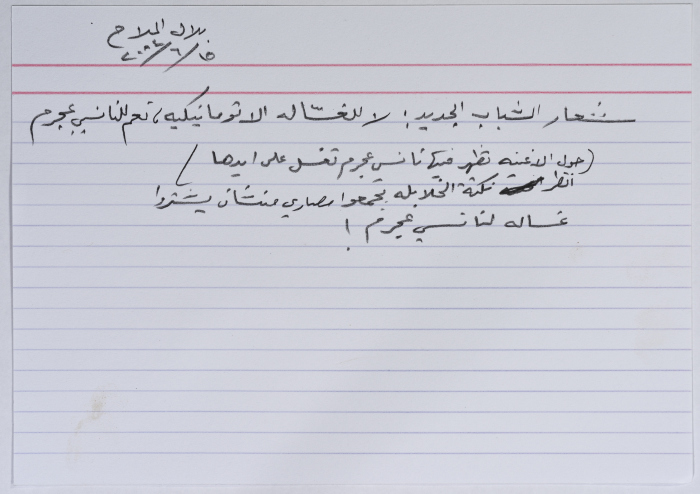 بلال الملاح
٢٠٠٤/٦/١٥
شعار الشباب الجديد: لا للغسّاله الاتوماتيكيه، نعم للنانسي عجرم
(حول الاغنيه تظهر فيها نانسي عجرم تغسل على ايدها)
انظر نكتة الخلايله بجمعوا مصاري منشان يشتروا
غساله لنانسي عجرم!